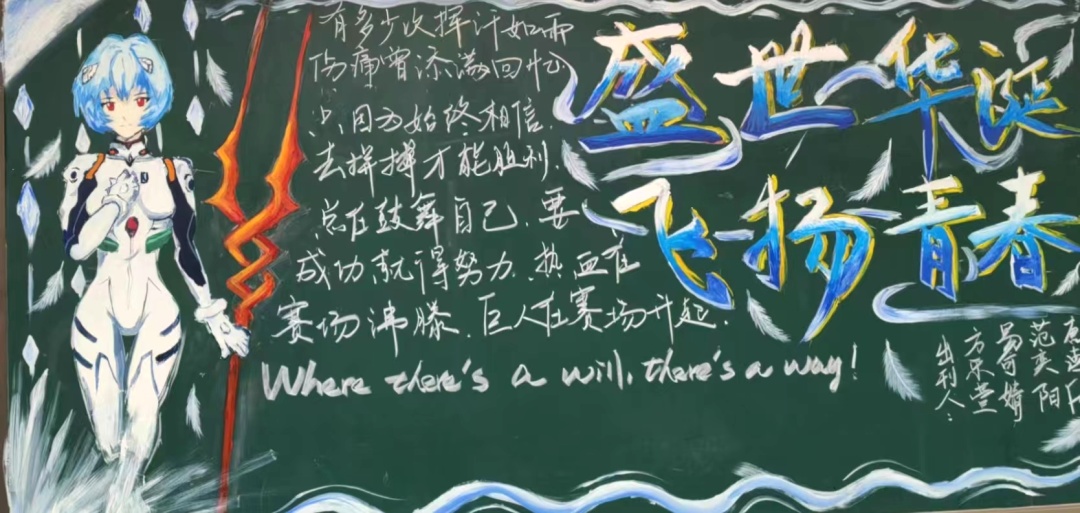 有多少次挥汗如雨
伤痛曾添满回忆
只因为始终相信.
去拼搏才能胜利.
总在鼓舞自己. 要
成功就得努力. 热血在
赛场沸腾. 巨人在赛场升起.
Where there's a will, there's a way!
盛世华诞
飞扬青春
出刊人:
范奕阳